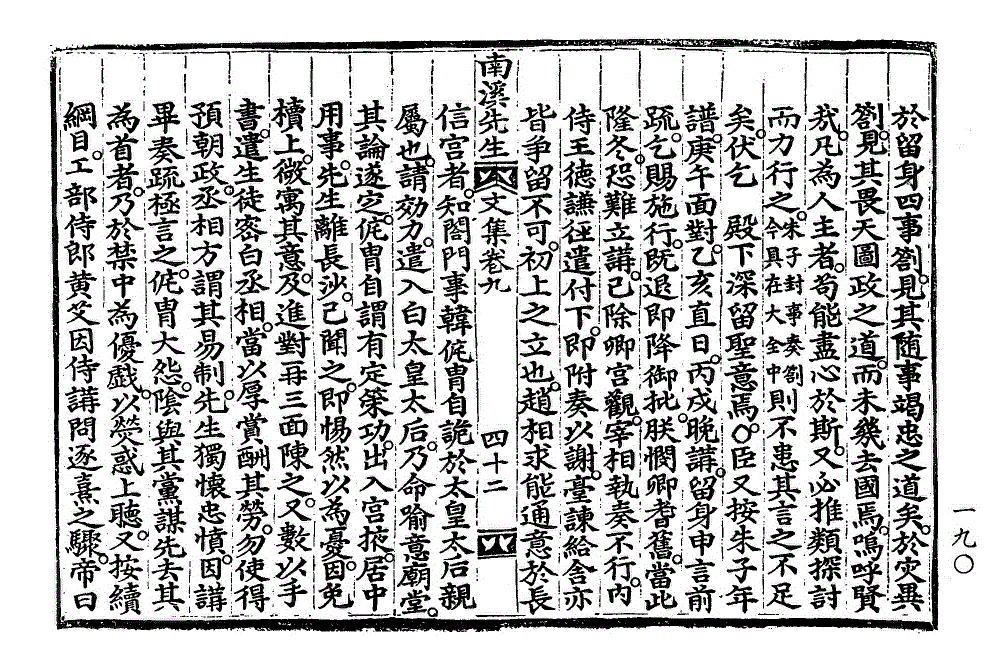 於留身四事劄。見其随事竭忠之道矣。於灾異
劄。見其畏天圖政之道。而未幾去國焉。嗚呼賢
哉。凡為人主者。苟能盡心於斯。又必推類探討
而力行之。朱子封事奏劄今具在大全中則不患其言之不足
矣。伏乞 殿下深留聖意焉。○臣又按朱子年
譜。庚午面對。乙亥直日。丙戌晚講。留身申言前
疏。乞賜施行。旣退即降御批。朕憫卿耆舊。當此
隆冬。恐難立講。已除卿宮觀。宰相執奏不行。內
侍王德謙徑遣付下。即附奏以謝。臺諫給舍亦
皆爭留不可。初上之立也。趙相求能通意於長
南溪先生文集卷九 四十二
信宮者。知閤門事韓侂胄自詭於太皇太后親
屬也。請效力。遣入白太皇太后。乃命喻意廟堂。
其論遂定。侂胄自謂有定策功。出入宮掖。居中
用事。先生離長沙。已聞之。即惕然以為憂。因免
牘上。微寓其意。及進對。再三面陳之。又數以手
書。遣生徒密白丞相。當以厚賞酬其勞。勿使得
預朝政。丞相方謂其易制。先生獨懷忠憤。因講
畢奏疏極言之。侂胄大怨。陰與其黨謀先去其
為首者。乃於禁中為優戲。以熒惑上聽。又按續
綱目。工部侍郎黃艾因侍講問逐熹之驟。帝曰
一九〇